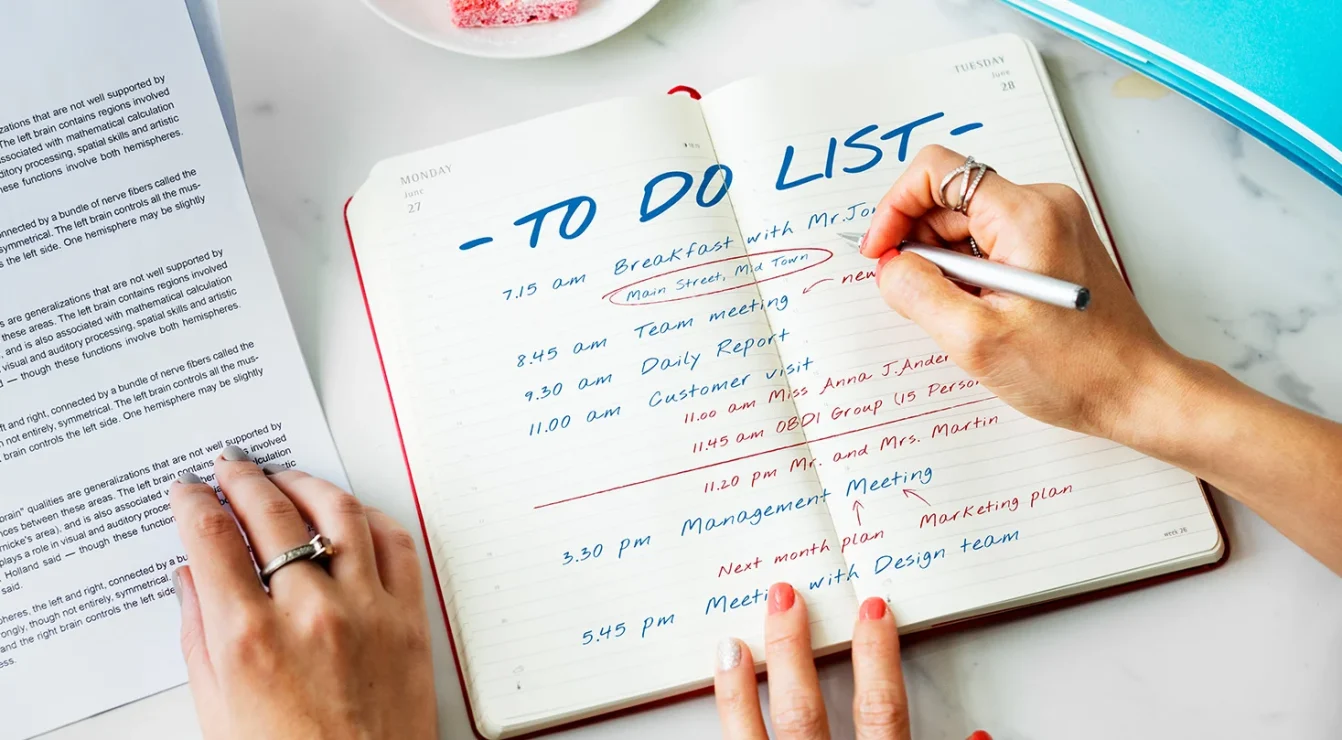 zations that are not well supported by
The left brain contains regions involved
associated with mathematical calculation
ditory processing, spatial skills and artistic
hese functions involve both hemispheres.
nnected by a bundle of nerve fibers called the
symmetrical. The left brain controls all the mus-
s the left side. One hemisphere may be slightly
s are generalizations that are not well supported by
these areas. The left brain contains regions involved
, and is also associated with mathematical calculation
visual and auditory processing, spatial skills and artistic
— though these functions involve both hemispheres.
ft and right, connected by a bundle of nerve fibers called the
not entirely, symmetrical. The left brain controls all the mus-
brain controls the left side. One hemisphere may be slightly
orain" qualities are generalizations that are not well supported by
nces between these areas. The left brain contains regions involved
nicke's area), and is also associated with calculation
plays a role in visual and auditory processing,
Holland said — though these function
said.
heres, the left and right, connected by a bu
ongly, though not entirely, symmetrical.
and the right brain controls the left side
ess.
MONDAY
June
27
TUESDAY
June
28
- TO DO LIST -
7.15 am Breakfast with Mr.Jo
Main Street, Mid Town
new
8.45 am Team meeting
9.30 am Daily Report
11.00 am Customer visit
11.00 am Miss Anna J.Ander
11.45 am OBDI Group (15 Perso
11.20 pm Mr. and Mrs. Martin
3.30 pm Management Meeting
Next month plan
Marketing plan
5.45 pm Meeti with Design team
week 26